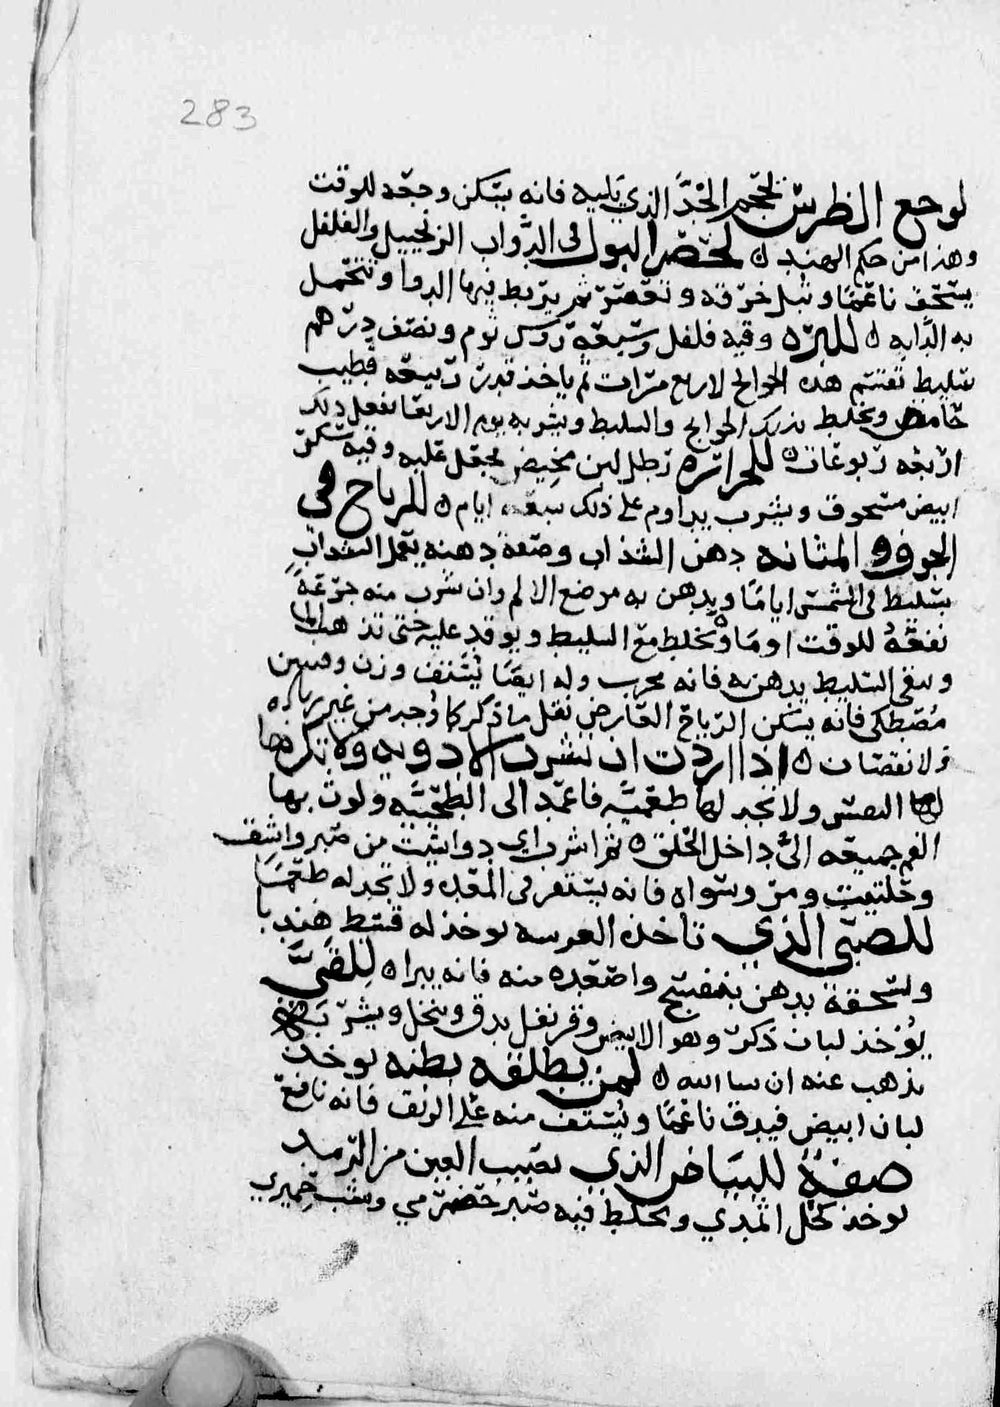 283
لوجع الظرس يحجم الخد الذي يليه فانه يسكن وجعه للوقت
وهذا من حكم الهند لحصر البول في الدواب الزنجبيل والفلفل
يسحق ناعما وتبل خرقه وتعصر ثم يربط فيها الدوا وتتحمل
به الدابه للبرده وقيه فلفل وسبعه روس ثوم ونصف درهم
سليط تقسم هذه الحوايج لاربع مرات ثم ياخذ قدر ربيعه قطيب
حامض ويخلط بذلك الحوايج والسليط ويشربه يوم الاربعا يفعل ذلك
اربعه ربوعات للحراره رطل لبن مخيض يجعل عليه وقيه سكر
ابيض مسحوق ويشرب يداوم على ذلك سبعه ايام للرياح في
الجوف والمثانه دهن الشذاب وصفة دهنه يعمل الشذاب
بسليط في الشمس اياما ويدهن به موضع الالم وان شرب منه جرعة
نفعه للوقت او ماوه يخلط مع السليط ويوقد عليه حتى تذهب الما
ويبقى السليط يدهن به فانه مجرب وله ايضا يستف وزن
مصطكى فانه يسكن الرياح العارض نقل ما ذكر كما وجد من غير زياده
ولا نقصان اذا اردت ان تشرب الادويه ولا تكرهها
النفس ولا تجد لها طعما فاعمد الى الطحينه ولوث بها
الفم جميعه الى داخل الحلق ثم اشرب اي دوا شيت من صبر واشق
وحلتيت ومر وسواه فانه يستقر في المعده ولا تجد له طعما
للصبي الذي تاخذه العرسه يوخذ له قسط هندي
ويسحقه بدهن بنفسج واصعده منه فانه يبرا للقي
يوخذ لبان ذكر وهو الابيض وقرنفل يدق وينخل ويشرب
يذهب عنه ان شا الله لمن يطلقه بطنه يوخذ
لبان ابيض فيدق ناعما ويستف منه على الريق فانه نافع
صفة للبياض الذي يصيب العين من الرمد
يوخذ كحل اثمدي ويخلط فيه صبر حضرمي وشب حميري